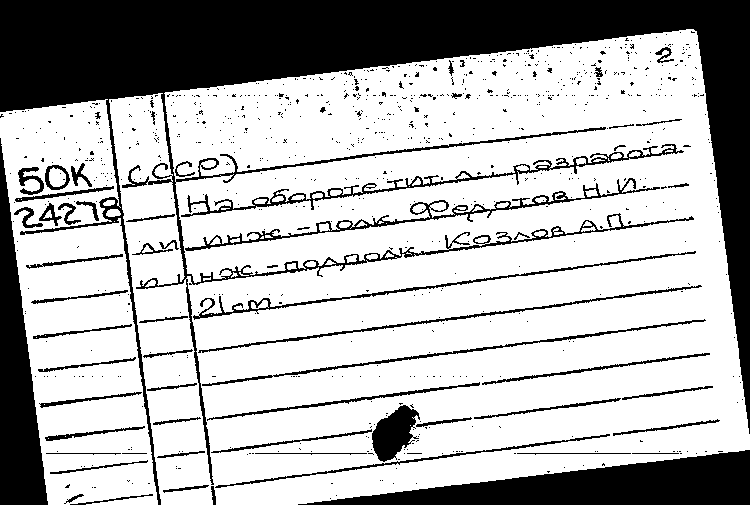 2
50К СССР).
24278 На обороте тит. л.: разработа-
ли инж.-полк. Федотов Н.И.
и инж.-подполк. Козлов А.П.
21 cm.